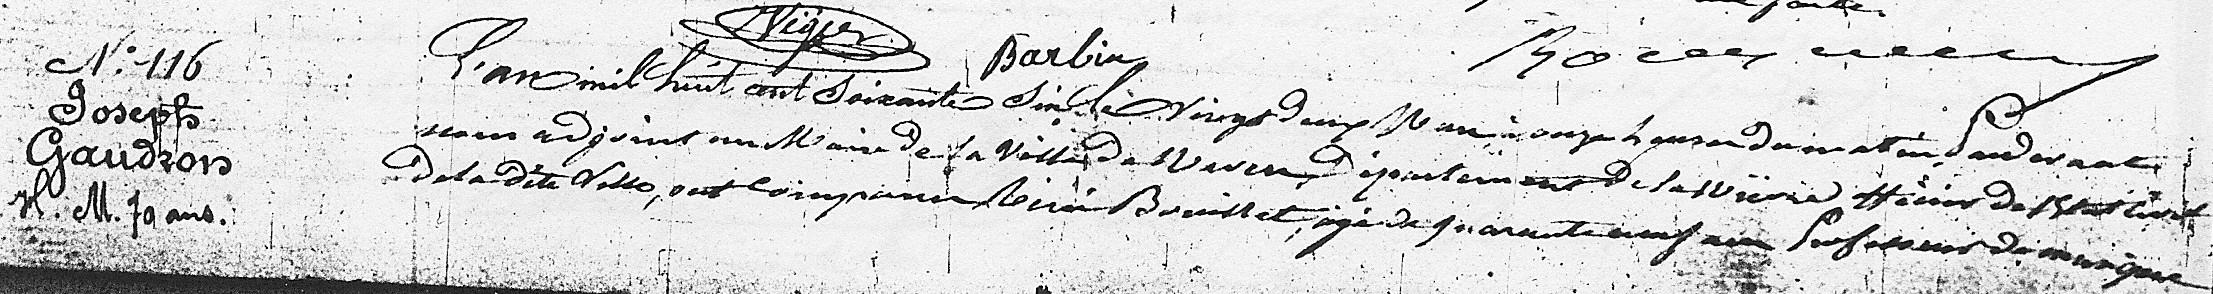 Niger
Barbin
N° 116
Joseph
Gaudron
H. M. 70 ans.
L'an mil huit cent soixante six le vingt deux Mars à onze heures du matin, Pardevant
nous adjoint au Maire de la Ville de Nevers, Département de la Nièvre officier de l'État Civil
de la dite Ville, ont comparu Brouillet, âgé de quarante neuf ans Professeur de musique